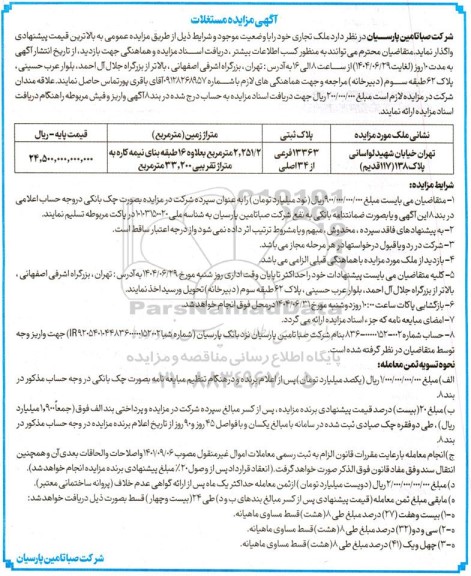 آگهی مزایده مستغلات
شرکت صبا تامین پارسیان در نظر دارد ملک تجاری خود را با وضعیت موجود و شرایط ذیل از طریق مزایده عمومی به بالاترین قیمت پیشنهادی
واگذار نماید. متقاضیان محترم می‌توانند به منظور کسب اطلاعات بیشتر، دریافت اسناد مزایده و هماهنگی جهت بازدید، از تاریخ انتشار آگهی
به مدت ۱۰ روز (لغایت ۱۴۰۴/۰۶/۲۹) از ساعت ۸ الی ۱۶ به آدرس: تهران، بزرگراه اشرفی اصفهانی، بالاتر از بزرگراه جلال آل احمد، بلوار عرب حسینی،
پلاک ۶۲ طبقه سوم (دبیرخانه) مراجعه و جهت هماهنگی های لازم با شماره ۰۹۱۳۸۲۶۸۹۵۷ آقای باقری پور تماس حاصل نمایند. علاقه مندان
شرکت در مزایده لازم است مبلغ ۲۰۰/۰۰۰/۰۰۰ ریال جهت دریافت اسناد مزایده به حساب درج شده در بند ۸ آگهی واریز و فیش مربوطه را هنگام دریافت
اسناد مزایده ارائه نمایند.
نشانی ملک مورد مزایده | پلاک ثبتی | متراژ زمین (مترمربع) | قیمت پایه - ریال
تهران خیابان شهید لواسانی | ۱۳۳۶۳ فرعی | ۲,۲۵۱/۲ مترمربع بعلاوه ۱۶ طبقه بنای نیمه کاره به | ۲۴,۵۰۰,۰۰۰,۰۰۰,۰۰۰
پلاک ۱۳۸ (۱۱۷ قدیم) | از ۳۴ اصلی | متراژ تقریبی ۳۳,۲۰۰ مترمربع
شرایط مزایده:
۱- متقاضیان می بایست مبلغ ۹۰۰/۰۰۰/۰۰۰/۰۰۰ ریال (نود میلیارد تومان) را به عنوان سپرده شرکت در مزایده بصورت چک بانکی در وجه حساب اعلامی
در بند ۸ این آگهی و یا بصورت ضمانتنامه بانکی به نفع شرکت صبا تامین پارسیان به شناسه ملی ۱۰۱۰۳۱۵۰۲۰ در پاکت مربوطه تسلیم نمایند.
۲- به پیشنهادهای فاقد سپرده، مخدوش، مبهم و یا مشروط ترتیب اثر داده نمی شود و از درجه اعتبار ساقط است.
۳- شرکت در رد و یا قبول درخواستها، در هر مرحله مجاز می باشد.
۴- بازدید از ملک مورد مزایده با هماهنگی قبلی الزامی می باشد.
۵- کلیه متقاضیان می بایست پیشنهادات خود را حداکثر تا پایان وقت اداری روز شنبه مورخ ۱۴۰۴/۰۶/۲۹ به آدرس: تهران، بزرگراه اشرفی اصفهانی،
بالاتر از بزرگراه جلال آل احمد، بلوار عرب حسینی، پلاک ۶۲ طبقه سوم (دبیرخانه) تحویل و رسید اخذ نمایند.
۶- بازگشایی پاکات ساعت ۱۰:۰۰ روز دوشنبه مورخ ۱۴۰۴/۰۶/۳۱ در محل فوق انجام خواهد شد.
۷- امضای مبایعه نامه که جزء اسناد مزایده ارائه می گردد.
توسط متقاضیان در نظر گرفته شده است.
نحوه تسویه ثمن معامله:
الف) مبلغ ۱/۰۰۰/۰۰۰/۰۰۰/۰۰۰ ریال (یکصد میلیارد تومان) پس از اعلام برنده و در هنگام تنظیم مبایعه نامه بصورت چک بانکی در وجه حساب مذکور در
بند ۸.
ب) مبلغ ۲۰ (بیست) درصد قیمت پیشنهادی برنده مزایده، پس از کسر مبالغ سپرده شرکت در مزایده و پرداختی بند الف فوق (جمعاً ۱,۹۰۰ میلیارد
ریال)، طی دو فقره چک صیادی ثبت شده در سامانه با مبالغ یکسان و با فواصل ۴۵ روز و ۹۰ روز از تاریخ اعلام برنده مزایده در وجه حساب مذکور در
بند ۸.
ج) انجام معامله با رعایت مقررات قانون الزام به ثبت رسمی معاملات اموال غیرمنقول مصوب ۱۴۰۱/۰۹/۰۶ و اصلاحات والحاقات بعدی آن و همچنین
انتقال سند وفق مفاد قانون فوق الذکر صورت خواهد گرفت. (انعقاد قرارداد پس از وصول ۲۰٪ مبلغ پیشنهادی برنده مزایده انجام خواهد شد).
د) مبلغ ۲/۰۰۰/۰۰۰/۰۰۰/۰۰۰ ریال (دویست میلیارد تومان) از ثمن معامله حداکثر یک ماه پس از ارائه گواهی عدم خلاف (پروانه ساختمانی معتبر).
ه) مابقی مبلغ ثمن معامله (قیمت پیشنهادی پس از کسر مبالغ بندهای ب و د) طی ۲۴ (بیست و چهار) قسط بصورت ذیل دریافت خواهد شد:
ه-۱) بیست و هفت (۲۷) درصد مبلغ طی ۸ (هشت) قسط مساوی ماهیانه.
ه-۲) سی و دو (۳۲) درصد مبلغ طی ۸ (هشت) قسط مساوی ماهیانه.
ه-۳) چهل و یک (۴۱) درصد مبلغ طی ۸ (هشت) قسط مساوی ماهیانه.
شرکت صبا تامین پارسیان